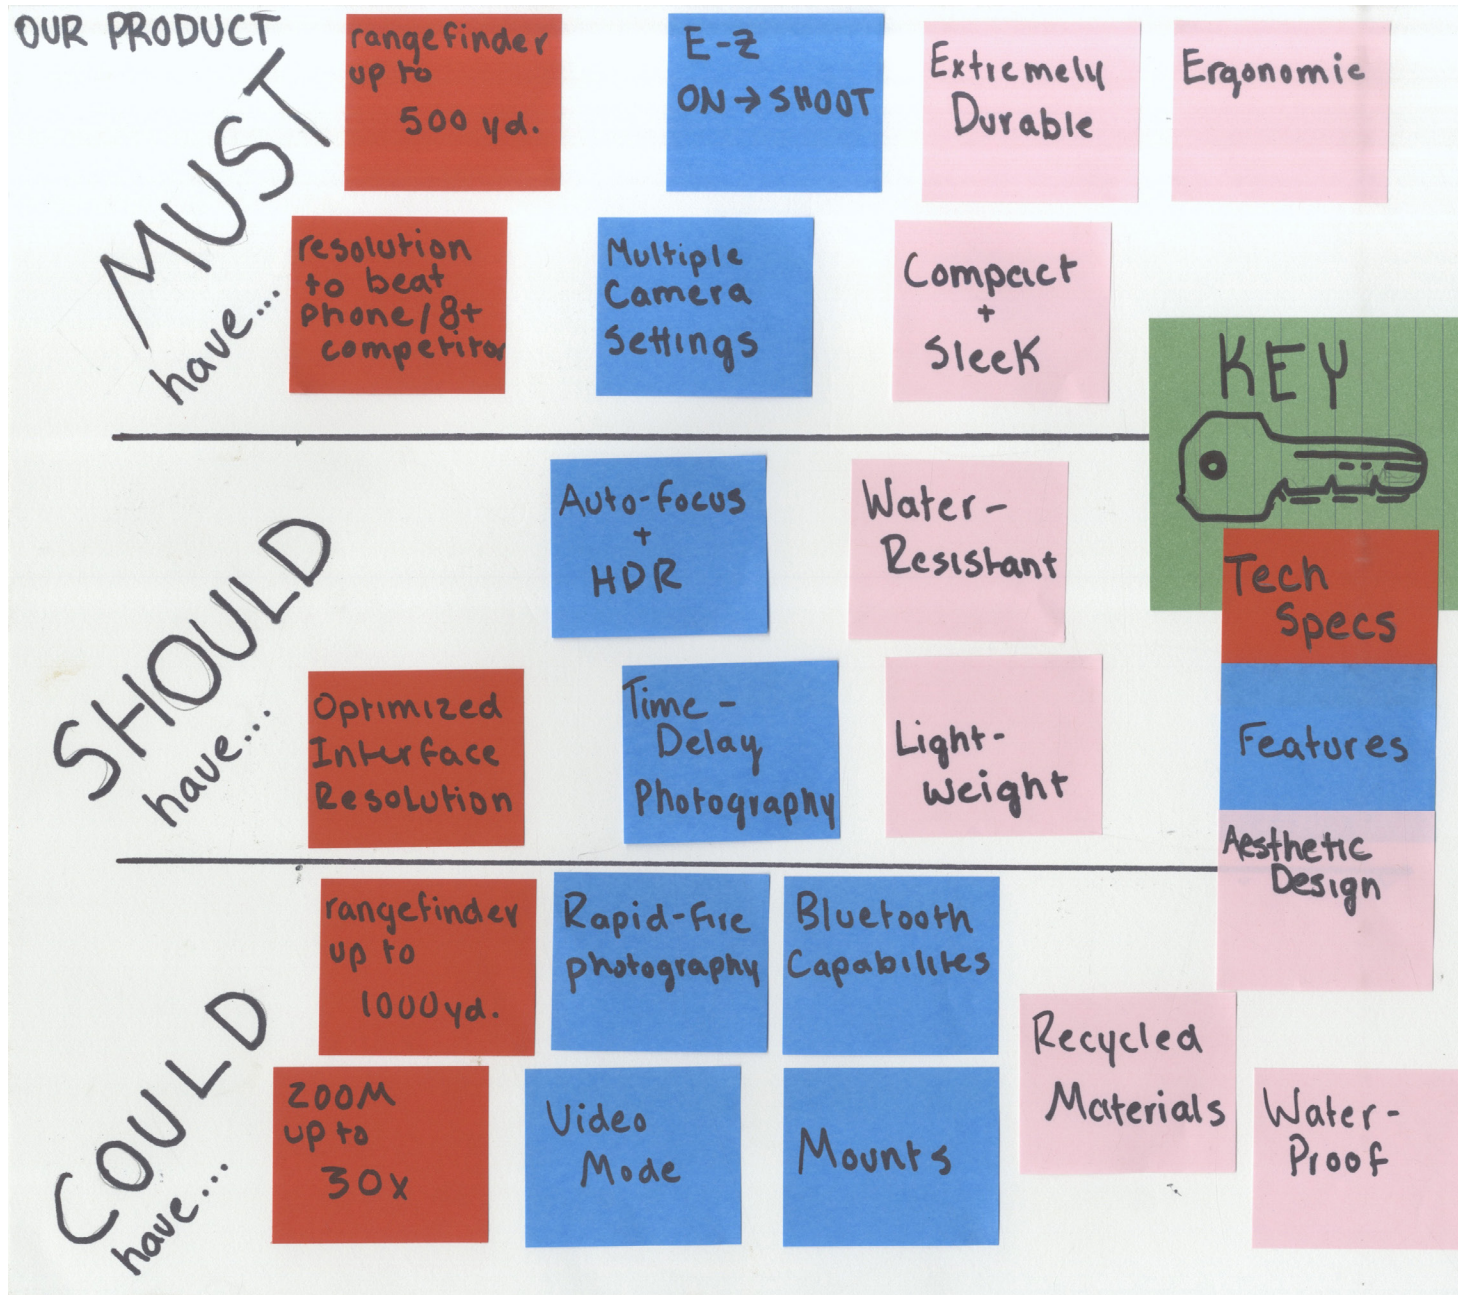 OUR PRODUCT
MUST
have...
rangefinder
up to
500 yd.
E-Z
ON → SHOOT
Extremely
Durable
Ergonomic
resolution
to beat
phone/8+
competitor
Multiple
Camera
Settings
Compact
+
Sleek
KEY
Tech
Specs
Features
Aesthetic
Design
SHOULD
have...
Auto-focus
+
HDR
Water-
Resistant
Optimized
Interface
Resolution
Time-
Delay
Photography
Light-
weight
COULD
have...
rangefinder
up to
1000yd.
Rapid-fire
photography
Bluetooth
Capabilites
Recycled
Materials
ZOOM
up to
30x
Video
Mode
Mounts
Water-
Proof